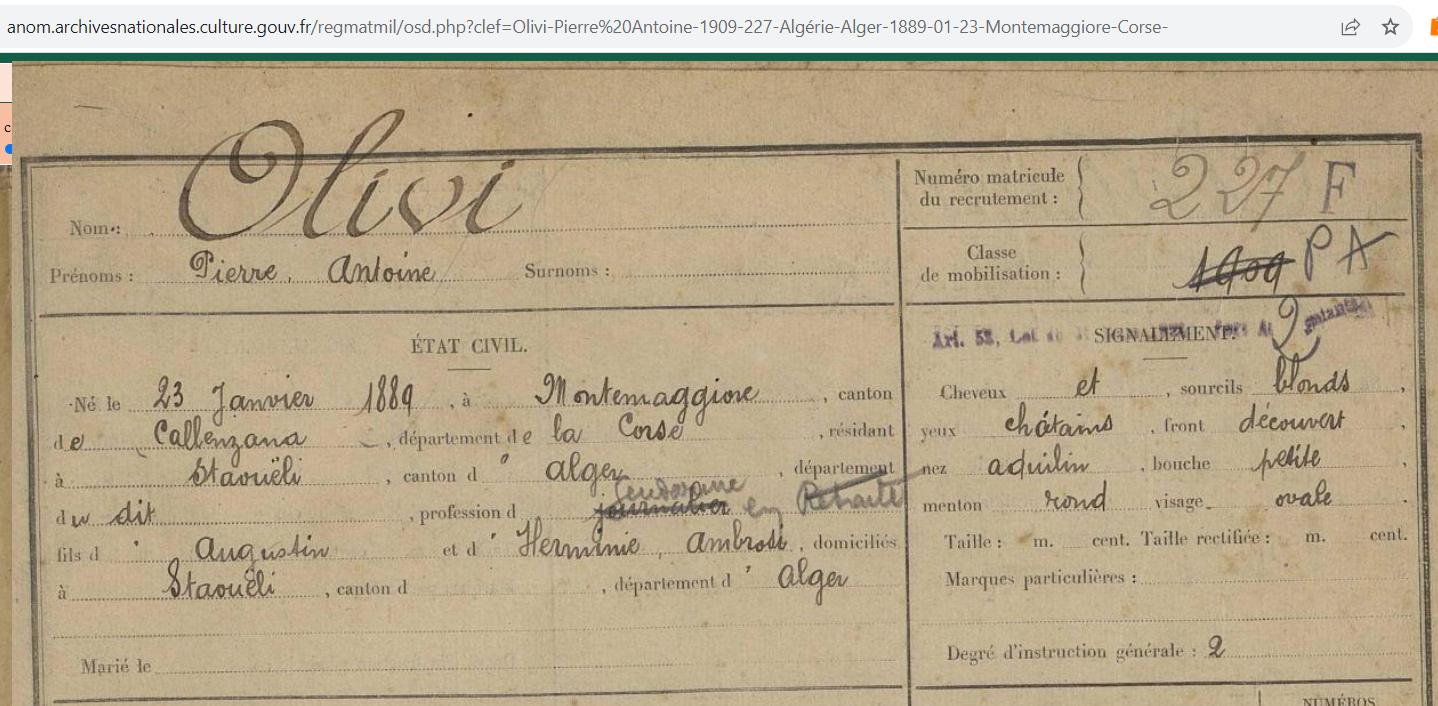 anom.archivesnationales.culture.gouv.fr/regmatmil/osd.php?clef=Olivi-Pierre%20Antoine-1909-227-Algérie-Alger-1889-01-23-Montemaggiore-Corse-
c
Nom : Olivi
Prénoms : Pierre, Antoine Surnoms :
Numéro matricule
du recrutement : 227 F
Classe
de mobilisation : 1909 PA
ÉTAT CIVIL.
Né le 23 Janvier 1889, à Montemaggiore, canton
de Callenzana, département de la Corse, résidant
à Staouëli, canton d' Alger, département
du dit, profession d journalier Gendarme en Retraite
fils d' Augustin et d' Herminie, Ambrosi, domiciliés
à Staouëli, canton d, département d' Alger
Marié le
Art. 58, Loi 2
SIGNALEMENT.
Cheveux et, sourcils blonds,
yeux châtains, front découvert,
nez aquilin, bouche petite,
menton rond visage ovale.
Taille : m. cent. Taille rectifiée : m. cent.
Marques particulières :
Degré d'instruction générale : 2
NUMÉROS